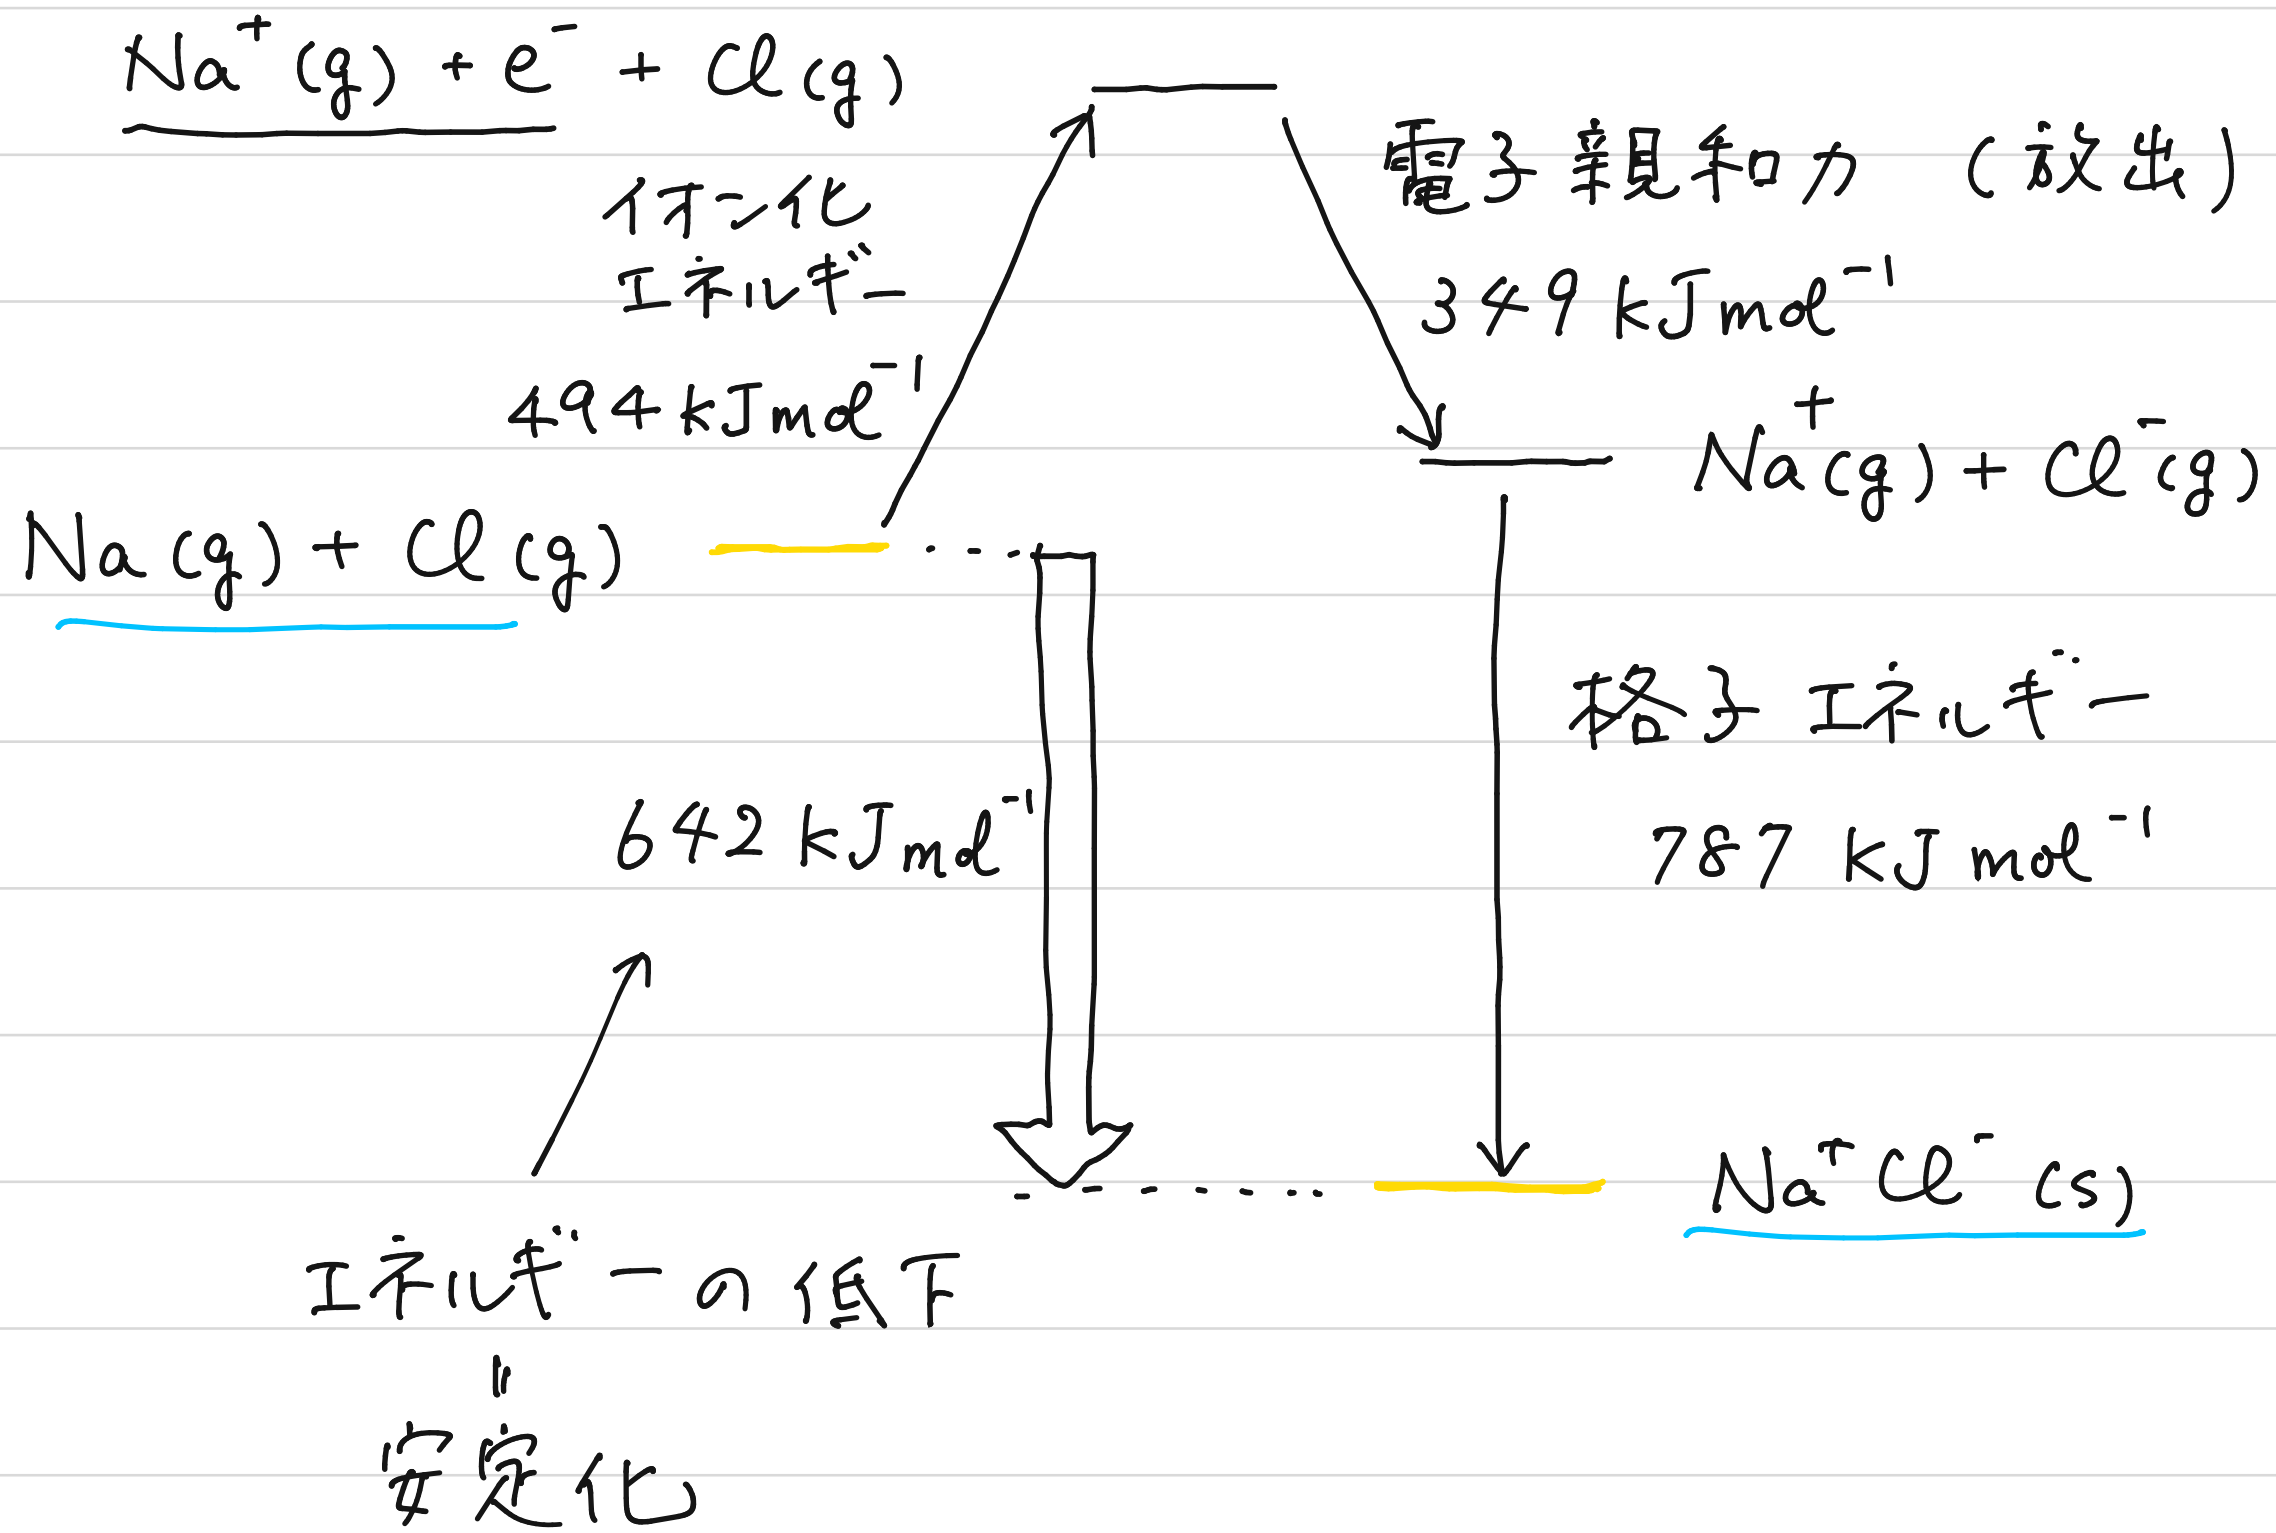 Na⁺(g) + e⁻ + Cl(g)
イオン化
エネルギー
494 kJ mol⁻¹
電子親和力（放出）
349 kJ mol⁻¹
Na⁺(g) + Cl⁻(g)
Na(g) + Cl(g)
格子エネルギー
787 kJ mol⁻¹
642 kJ mol⁻¹
Na⁺Cl⁻(s)
エネルギーの低下
=
安定化